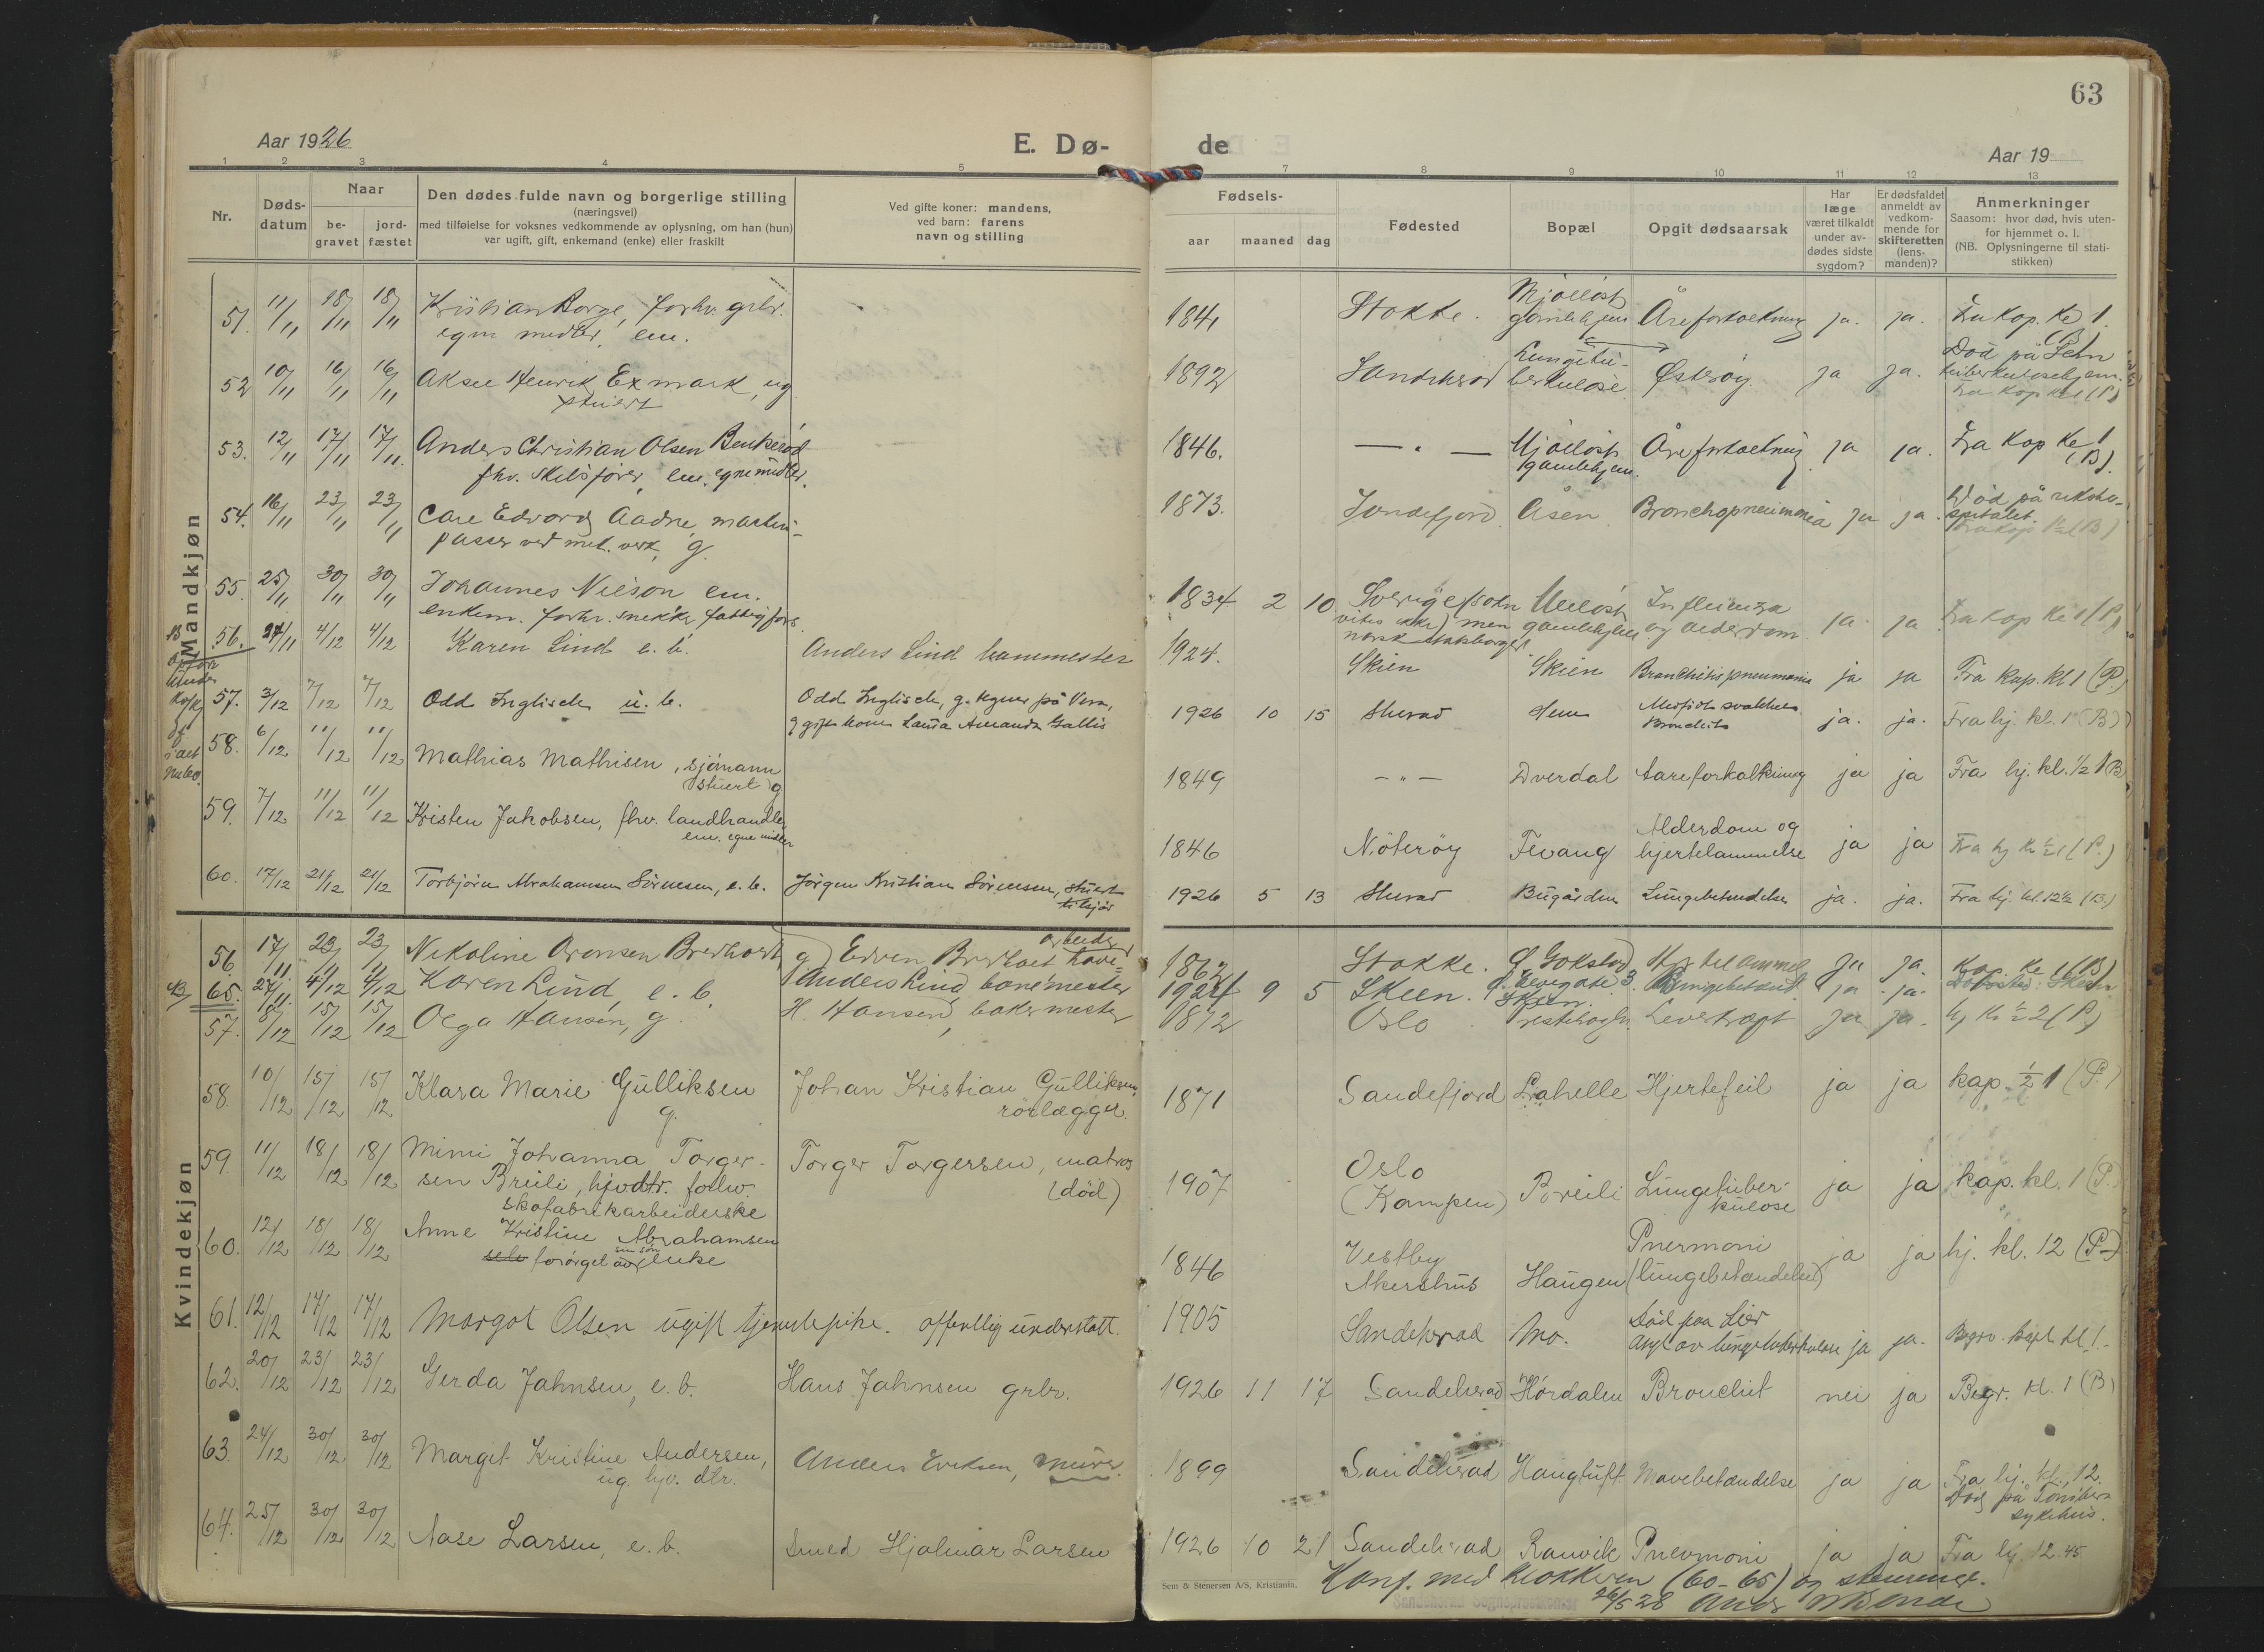 63
Aar 1926
E. Dø-
de
Aar 19
1 2 3 4 5 7 8 9 10 11 12 13
Nr.
Døds-
datum
Naar
be-
gravet
jord-
fæstet
Den dødes fulde navn og borgerlige stilling
(næringsvei)
med tilføielse for voksnes vedkommende av oplysning, om han (hun)
var ugift, gift, enkemand (enke) eller fraskilt
Ved gifte koner: mandens,
ved barn: farens
navn og stilling
Fødsels-
aar maaned dag
Fødested
Bopæl
Opgit dødsaarsak
Har
læge
været tilkaldt
under av-
dødes sidste
sygdom?
Er dødsfaldet
anmeldt av
vedkom-
mende for
skifteretten
(lens-
manden)?
Anmerkninger
Saasom: hvor død, hvis uten-
for hjemmet o. l.
(NB. Oplysningerne til stati-
stikken)
Mandkjøn
51. 11/11 18/11 18/11 Kristian Borge, forhv. grbr. 1841 Stokke. Mjølløst Åreforkalkning ja. ja. Fra Kap. Kl 1
egne midler, em. gamlehjem (B)
52 10/11 16/11 16/11 Aksel Henrik Exmark, ug 1892 Sandeherad Lungetu- Østerøy. ja ja. Død på Sem
stuert berkulose tuberkulosehjem.
Fra Kap Kl 1 (P)
53. 12/11 17/11 17/11 Anders Christian Olsen Benkerød 1846. — " — Mjølløst Åreforkalkning ja ja. Fra Kap Kl 1
fhv. skibsfører, em. egne midler. gamlehjem (B).
54. 16/11 23/11 23/11 Carl Edvard Aadne, maskin- 1873. Sandefjord Åsen Bronchopneumonia ja ja. Død på riksho-
passer ved mek. verk, g. spitalet.
55. 25/11 30/11 30/11 Johannes Nilson em. 1834 2 10 Sverige Influenza ja ja Fra Kap Kl 1 (P)
enkem. forhv. snekker fattigfors. men gamlehjem og alderdom
norsk statsborger
56. 27/11 4/12 4/12 Karen Lind e. b. Anders Lind banemester 1924. Skien Skien Bronchitis pneumonia ja ja Fra Kap. kl 1 (P.)
57. 3/12 7/12 7/12 Odd Inglisch u. b. Odd Inglisch, g. tegner på Vera, 1926 10 15 Sherad Sem Medfødt svakhet ja. ja. Fra hj. kl. 1 (B)
g gift kone Laura Amanda Gallis Bronchitis
58. 6/12 11/12 11/12 Mathias Mathisen, sjømann 1849 — " — Dverdal Aareforkalkning ja ja Fra hj. kl. ½ 1 (B)
(stuert) g
59. 7/12 11/12 11/12 Kristen Jakobsen, fhv. landhandler 1846 Nøterøy Fevang Alderdom og ja ja Fra hj kl ½1 (P.)
em. egne midler hjertelammelse
60. 17/12 21/12 21/12 Torbjørn Abrahamsen Sørensen, e. b. Jørgen Kristian Sørensen, stuert 1926 5 13 Sherad Bugården Lungebetendelse ja. ja. Fra hj. kl. 12½ (B.)
til sjøs
Kvindekjøn
56. 17/11 23/11 23/11 Nikoline Aronsen Bredhoel g Edvin Bredhoel have= 1862 Stokke. Ø. Gokstad ja ja. Kap. Kl 1 (B)
arbeider
65. 27/11 4/12 4/12 Karen Lind, e. b. Anders Lind banemester 1924 9 5 Skien. Skien. Lungebetænd. ja ja. Dødssted: Skien
57. 8/12 15/12 15/12 Olga Hansen, g. H. Hansen, bakermester 1872 Oslo Leverkræft ja ja. hj kl ½ 2 (P)
58. 10/12 15/12 15/12 Klara Marie Gulliksen Johan Kristian Gulliksen, 1871 Sandefjord Lahelle Hjertefeil ja ja kap. ½ 1 (P.)
g. rørlægger.
59. 11/12 18/12 18/12 Mimi Johanna Torger- Torger Torgersen, matros 1907 Oslo Breili Lungetuber- ja ja kap. kl. 1 (P.)
sen Breili, hjv. dtr. forhv. (død) (Kampen) kulose
skofabrikarbeiderske
60. 12/12 18/12 18/12 Anne Kristine Abrahamsen 1846 Vestby Haugen Pnevmoni ja ja hj. kl. 12 (P.)
selv forsørget av sin søn enke Akershus (lungebetændelse)
61. 12/12 17/12 17/12 Margot Olsen ugift tjenestepike. offentlig understøtt. 1905 Sandeherad Mo. Død paa Lier
asyl av lungetuberkulose ja ja. Begrv. kapl. kl 1.
62. 20/12 23/12 23/12 Gerda Jahnsen, e. b. Hans Jahnsen grbr. 1926 11 17 Sandeherad Hørdalen Bronchit nei ja Begr. kl. 1 (B)
63. 24/12 30/12 30/12 Margit Kristine Andersen, Anders Eriksen, murer. 1899 Sandeherad Haugtuft Mavebetændelse ja ja Fra hj. kl. 12.
ug. hjv. dtr. Død på Tønsberg
sykehus.
64. 25/12 30/12 30/12 Aase Larsen, e. b. Smed Hjalmar Larsen 1926 10 21 Sandeherad Ranvik Pnevmoni ja ja Fra hj. 12.45
Sem & Stenersen A/S, Kristiania.
Konf. med klokkeren (60-65) og stemmer.
26/5 28